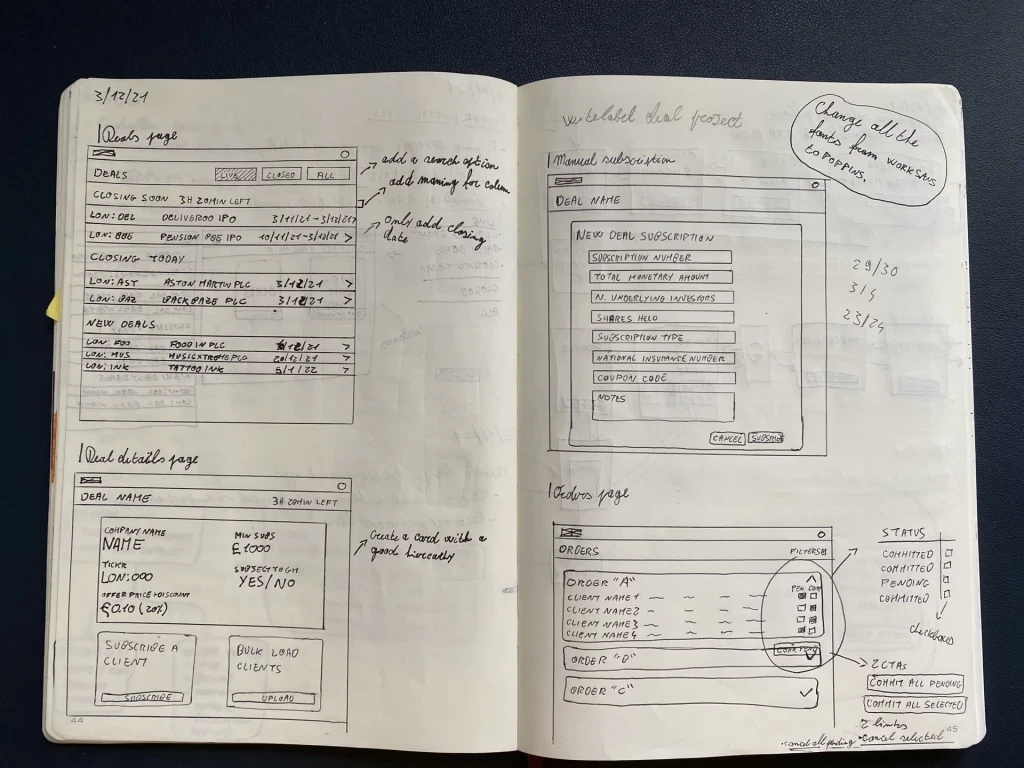 3/12/21
Deals page
DEALS LIVE CLOSED ALL
CLOSING SOON 3H 20MIN LEFT
LON: DEL DELIVEROO IPO 3/11/21-3/12/21
LON: BEE PENSION BEE IPO 10/11/21-3/12/21 >
CLOSING TODAY
LON: AST ASTON MARTIN PLC 3/12/21 >
LON: BAZ BACK BAZE PLC 3/12/21 >
NEW DEALS
LON: FOO FOOD IN PLC >
LON: MUS PLC 20/12/21 >
LON: INK TATTOO INK 5/1/22 >
add a search option
add naming for colum
only add closing
date
Deal details page
DEAL NAME 3H 20MIN LEFT
COMPANY NAME
NAME
TICKR
LON:000
OFFER PRICE + DISCOUNT
£0.10 (20%)
MIN SUBS
£1000
SUBJECT TO GM
YES/NO
SUBSCRIBE A
CLIENT
SUBSCRIBE
BULK LOAD
CLIENTS
UPLOAD
Create a card with a
good hierarchy
44
witelabel deal project
Change all the
fonts from WORKSANS
to POPPINS.
Manual subscription
DEAL NAME
NEW DEAL SUBSCRIPTION
SUBSCRIPTION NUMBER
TOTAL MONETARY AMOUNT
N. UNDERLYING INVESTORS
SHARES HELD
SUBSCRIPTION TYPE
NATIONAL INSURANCE NUMBER
COUPON CODE
NOTES
CANCEL SUBSCRIBE
29/30
3/4
23/24
Orders page
ORDERS FILTERS
ORDER "A"
PEN COM
CLIENT NAME 1
CLIENT NAME 2
CLIENT NAME 3
CLIENT NAME 4
ORDER "B"
ORDER "C"
STATUS
COMMITTED
COMMITTED
PENDING
COMMITTED
checkboxes
2 CTAS
COMMIT ALL PENDING
COMMIT ALL SELECTED
2 links
• cancel all pending • cancel selected
45